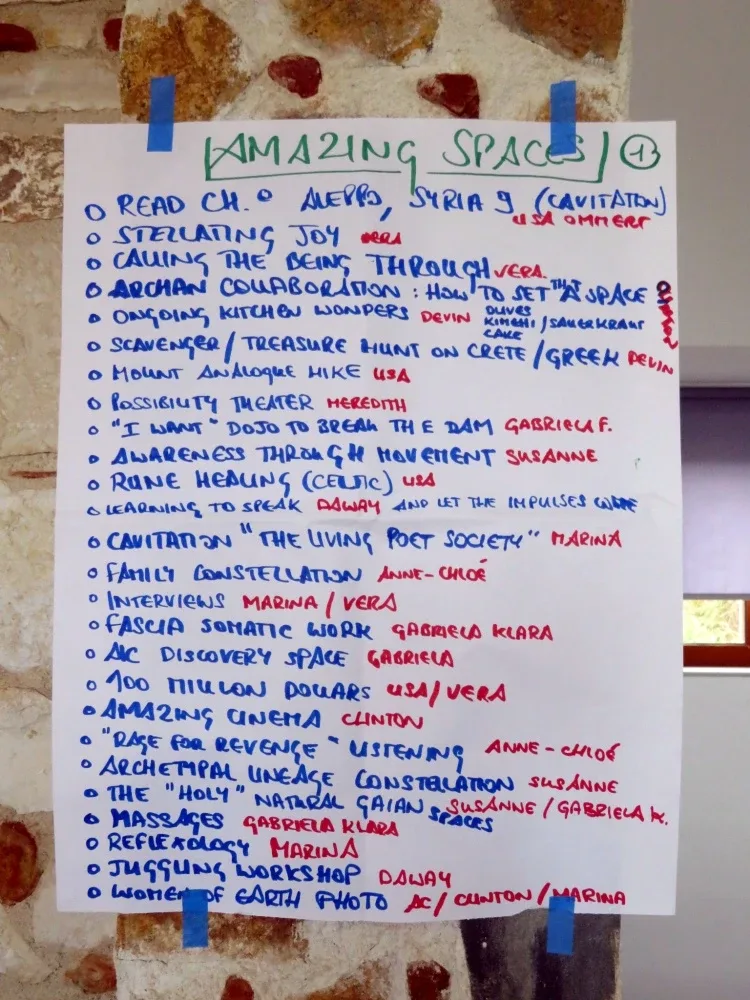 AMAZING SPACES 1
READ CH. 9 ALEPPO, SYRIA (CAVITATION)
LISA OMMERT
STELLATING JOY VERA
CALLING THE BEING THROUGH VERA
ARCHAN COLLABORATION: HOW TO SET THAT SPACE
ONGOING KITCHEN WONDERS DEVIN OLIVES
KIMCHI / SAUERKRAUT
CAKE
SCAVENGER / TREASURE HUNT ON CRETE / GREEK DEVIN
MOUNT ANALOGUE HIKE LISA
POSSIBILITY THEATER MEREDITH
"I WANT" DOJO TO BREAK THE DAM GABRIELA F.
AWARENESS THROUGH MOVEMENT SUSANNE
RUNE HEALING (CELTIC) LISA
LEARNING TO SPEAK DAWAY AND LET THE IMPULSES COME
CAVITATION "THE LIVING POET SOCIETY" MARINA
FAMILY CONSTELLATION ANNE-CHLOÉ
INTERVIEWS MARINA / VERA
FASCIA SOMATIC WORK GABRIELA KLARA
AC DISCOVERY SPACE GABRIELA
100 MILLION DOLLARS LISA / VERA
AMAZING CINEMA CLINTON
"RAGE FOR REVENGE" LISTENING ANNE-CHLOÉ
ARCHETYPAL LINEAGE CONSTELLATION SUSANNE
THE "HOLY" NATURAL GAIAN SPACES SUSANNE / GABRIELA K.
MASSAGES GABRIELA KLARA
REFLEXOLOGY MARINA
JUGGLING WORKSHOP DAWAY
WOMEN OF EARTH PHOTO AC / CLINTON / MARINA